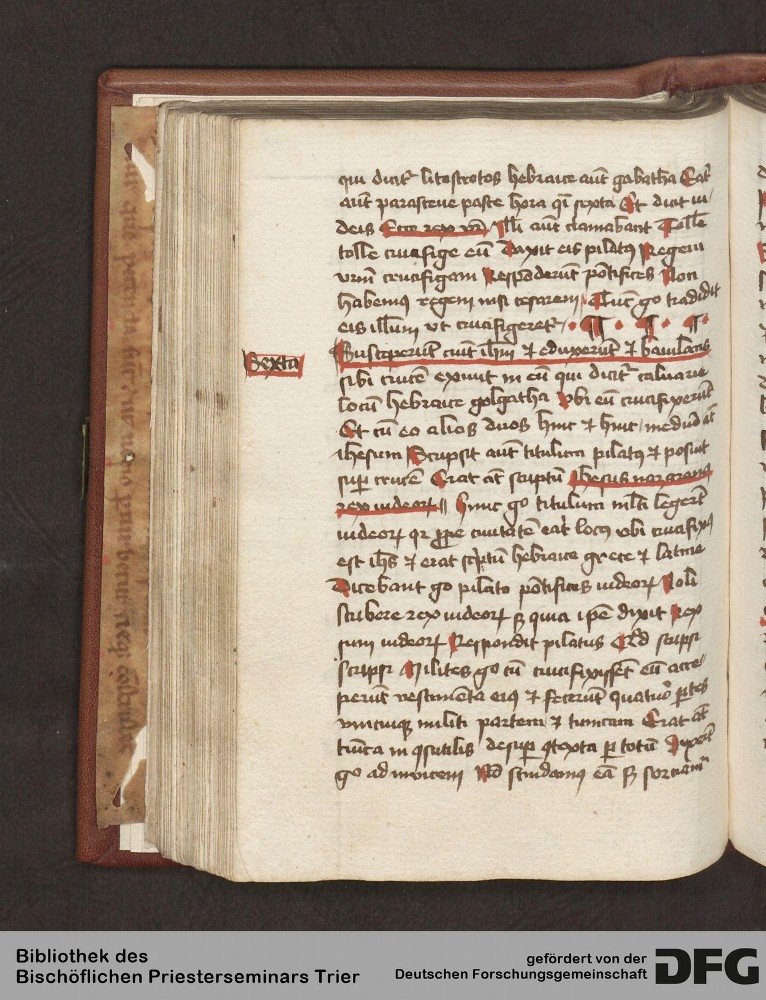 qui dicit᷑ litostrotos hebraice aūt gabatha Erat᷑
aūt parasceue pasce hora q̄i sexta Et dicit iu/
deis Ecce rex vr̄ Illi aūt clamabant Tolle
tolle crucifige eū Dixit eis pilatꝯ Regem
vrm̄ crucifigam Respōderūt pōtifices Non
habemꝯ regem nisi cesarem Tūc g̊o tradidit
eis illum vt crucifigeret᷑ · ¶ · ¶ · ¶ ·
Susceperūt aūt ih̄m ⁊ eduxerūt ⁊ baiulans
Sexta
sibi crucē exiuit in eū qui dicit᷑ caluarie
locū hebraice golgatha Vbi eū crucifixerūt
Et cū eo alios duos hinc ⁊ hinc / mediū aūt
ihesum Scripsit aūt titulum pilatꝯ ⁊ posuit
suꝑ crucē Erat āt scriptū Ihesus nazarenꝯ
rex iudeoꝝ Hunc g̊o titulum ml̄ti legerūt
iudeoꝝ qꝛ ꝓpe ciuitatē erat locꝯ vbi crucifixꝯ
est ih̄s ⁊ erat scptū hebraice grece ⁊ latine
Dicebant g̊o pilato pōtifices iudeoꝝ Noli
scribere rex iudeoꝝ sꝫ quia ip̄e dixit Rex
sum iudeoꝝ Respondit pilatus Qd̄ scripsi
scripsi Milites g̊o cū crucifixissēt eū acce/
perūt vestimenta eiꝯ ⁊ fecerūt quatuor ꝑtes
vnicuiqꝫ militi partem ⁊ tunicam Erat āt
tunica incōsutilis desuꝑ cōtexta ꝑ totū Dixerūt
g̊o adinuicem Nō scindamꝯ eā sꝫ sorciam᷑
Bibliothek des
Bischöflichen Priesterseminars Trier
gefördert von der
Deutschen Forschungsgemeinschaft
DFG